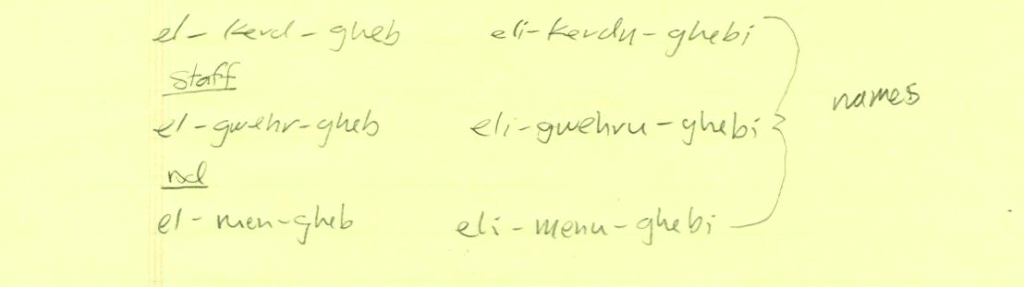 el-kerd-gheb eli-kerdu-ghebi
staff
names
el-gwehr-gheb eli-gwehru-ghebi
rod
el-men-gheb eli-menu-ghebi